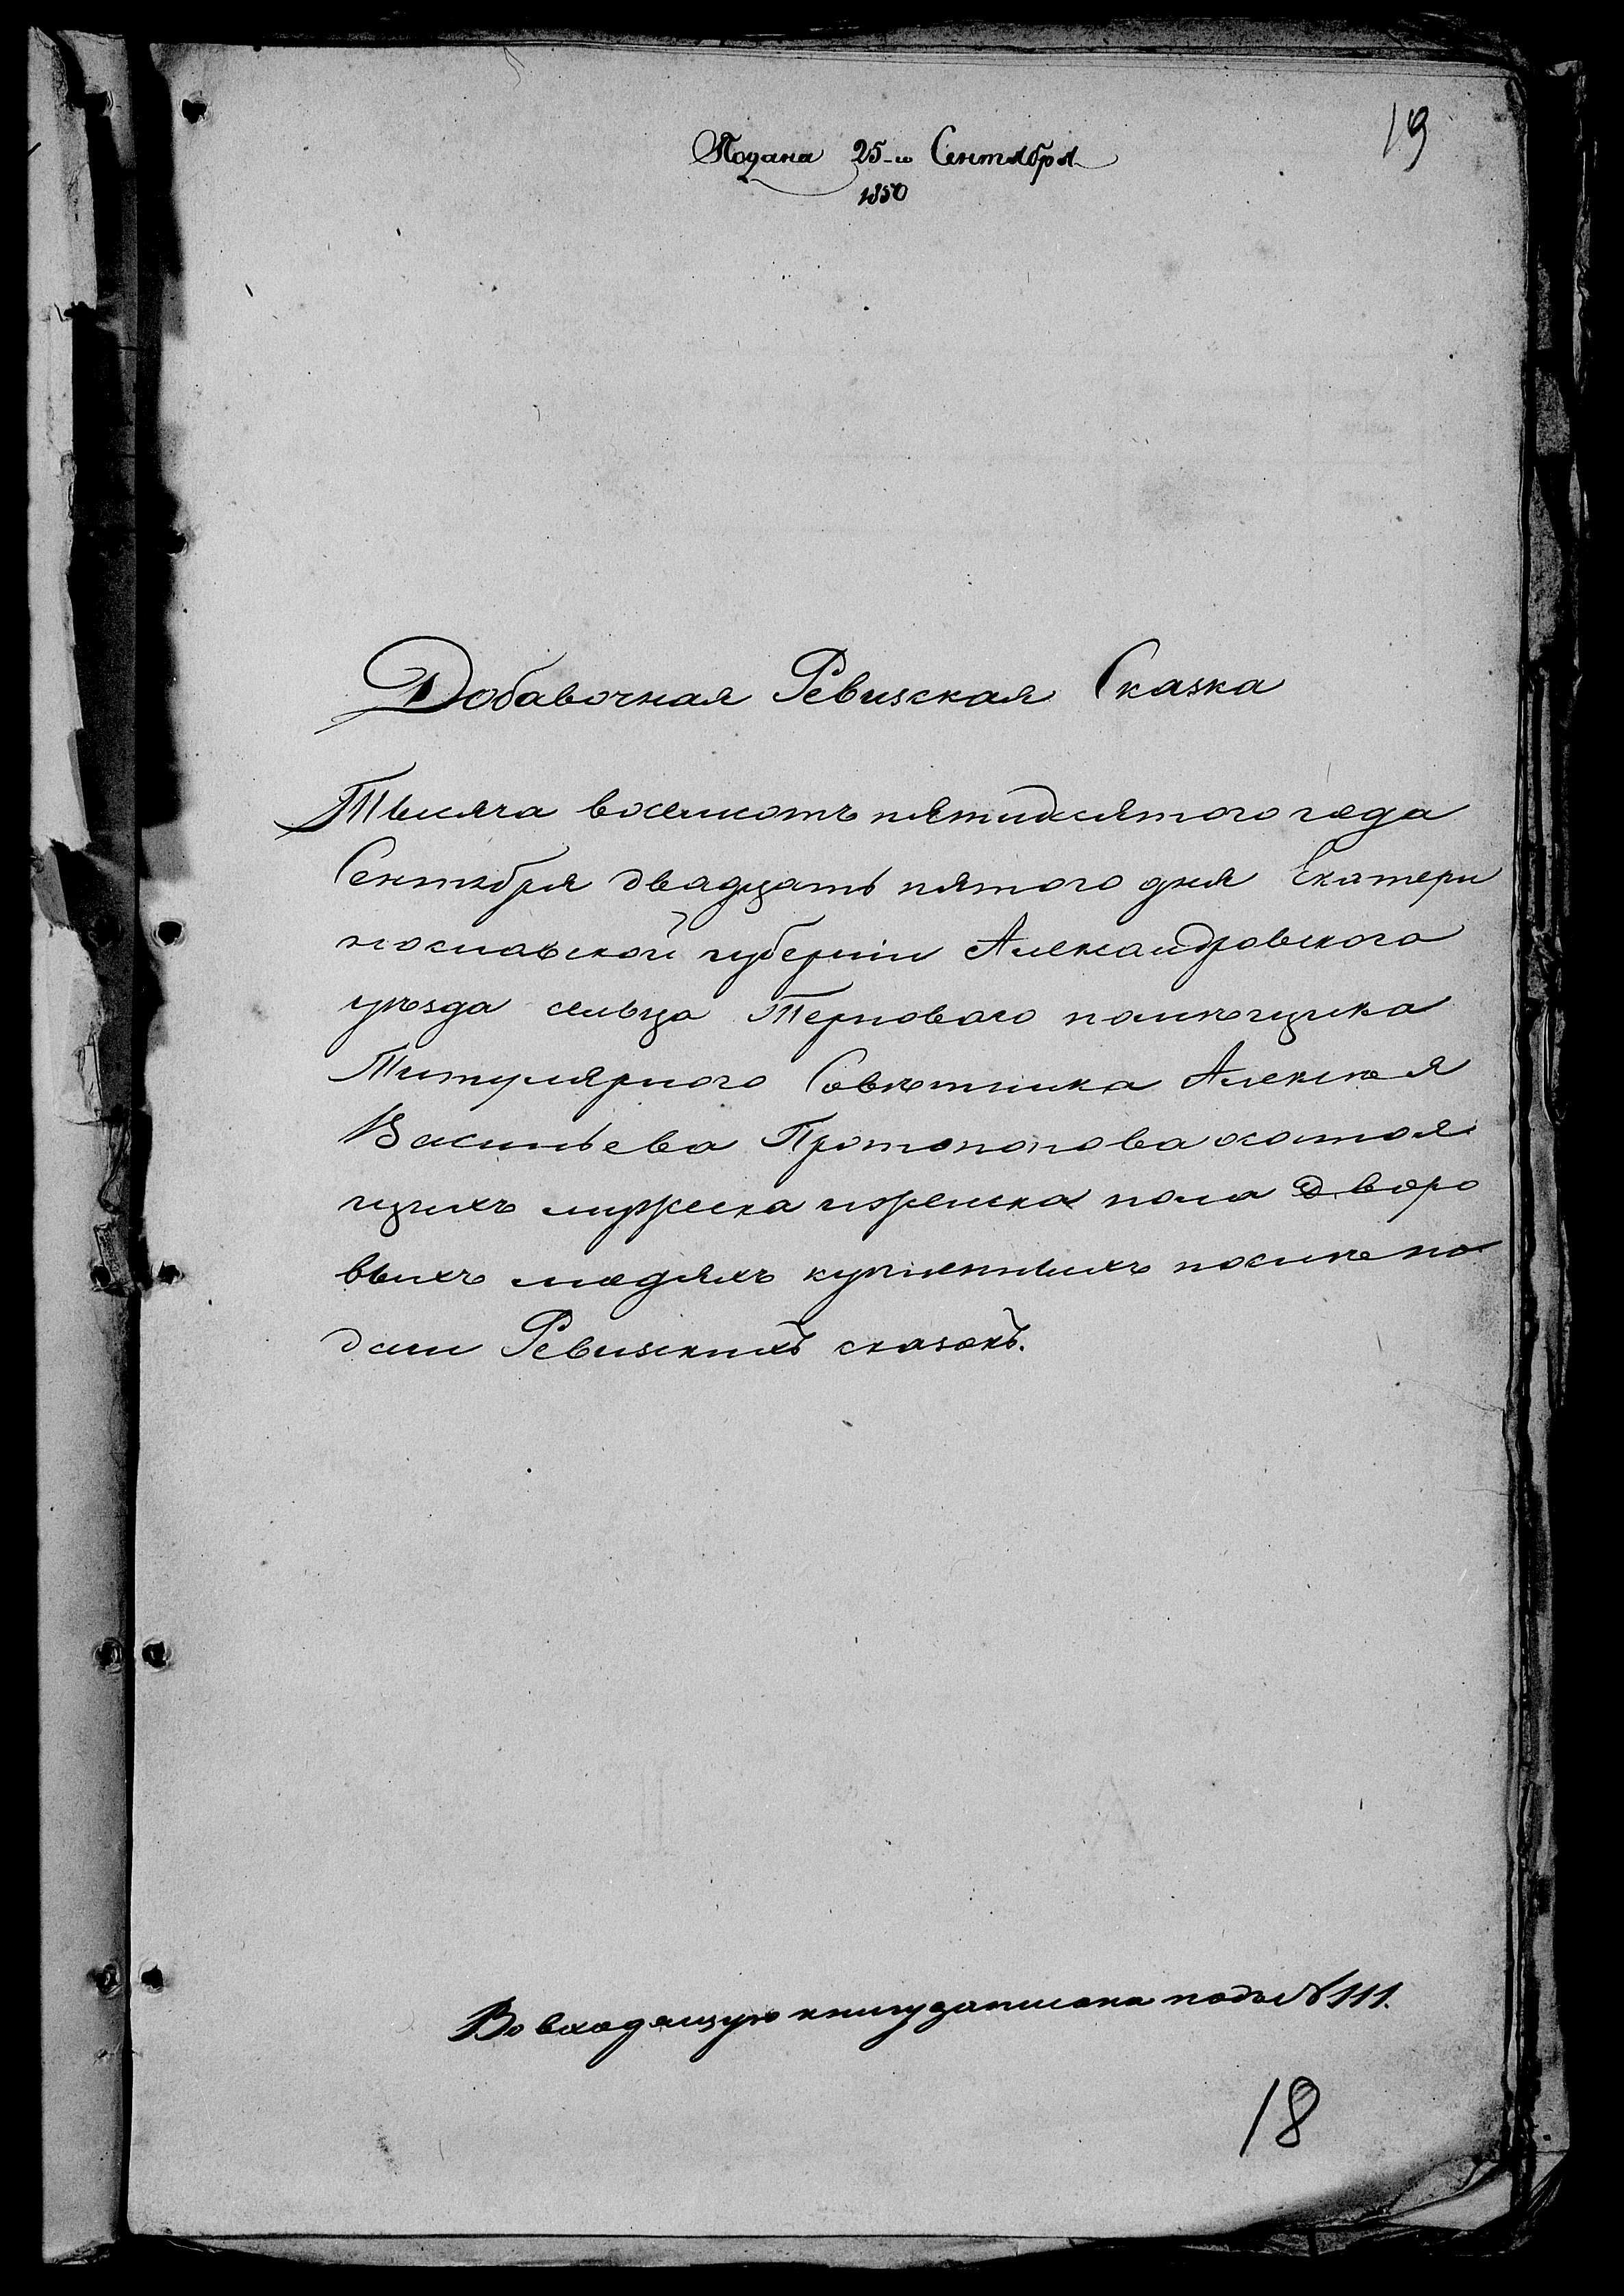 19
Подана 25-го Сентября
1850
Добавочная Ревизская Сказка
Тысяча восемсотъ пятидесятого года
Сентября двадцать пятого дня Екатери
нославской губерніи Александровского
уѣзда сельца Терноваго помѣщика
Титулярного Совѣтника Алексѣя
Васильева Протопопова осостоя
щихъ мужеска иженска пола дворо
выхъ людяхъ купленныхъ послѣ по
дачи Ревизскихъ сказокъ.
Во входящую книгу записана подъ №111.
18